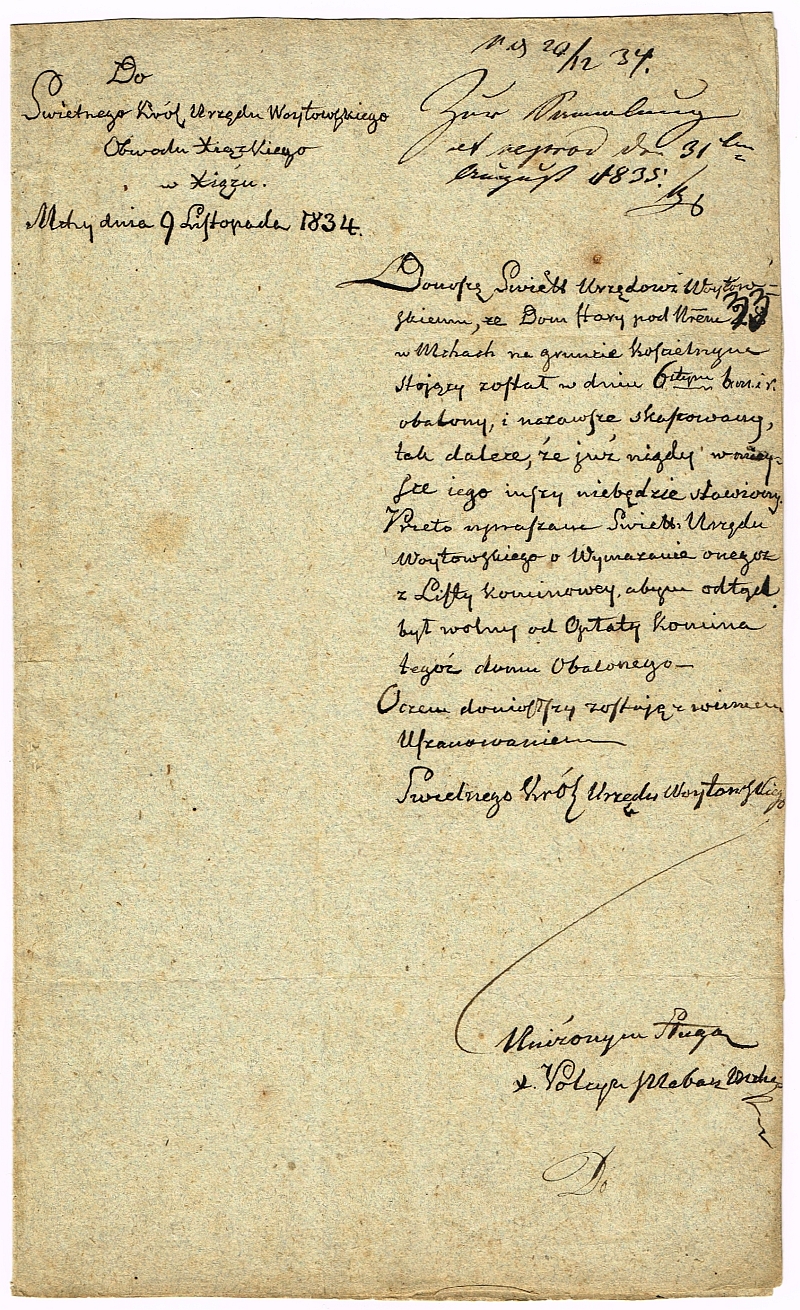 Do
Swietnego Król Urzędu Woytowskiego
Obwodu Xiązkiego
w Xiązu.
Mchy dnia 9 Listopada 1834.
20/12 34.
Zur Sammlung
et reprod den 31ten
August 1835.
Donoszę Swiett Urzędowi Woytow-
skiemu, że Dom stary pod Nrem 33
w Mchach na gruncie Kościelnym
stojący został w dniu 6stym b. m. i r.
obalony, i nazawsze skassowany,
tak dalece, że już nigdy w miey-
sce iego inszy niebędzie stawiony.
Przeto upraszam Swiett: Urzędu
Woytowskiego o Wymazanie onegoż
z Listy Kominowey, abym odtąd
był wolny od Opłaty Komina
tegoż domu Obalonego—
Oczem doniosłszy zostaję z winnem
Uszanowaniem
Swietnego Król Urzędu Woytowskiego
Uniżonym Sługą
X.
Do